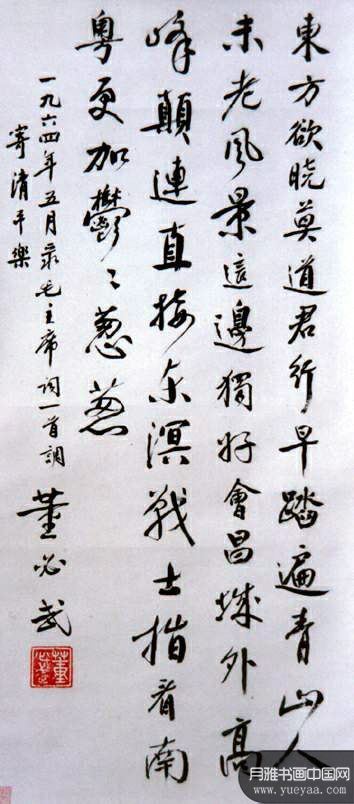 東方欲曉莫道君行早踏遍青山人
未老風景這邊獨好會昌城外高
峰顛連直接东溟戰士指看南
粤更加鬱〻蔥蔥
一九六四年五月录毛主席词一首調
寄清平樂
董必武
月雅书画中国网
www.yueyaa.com